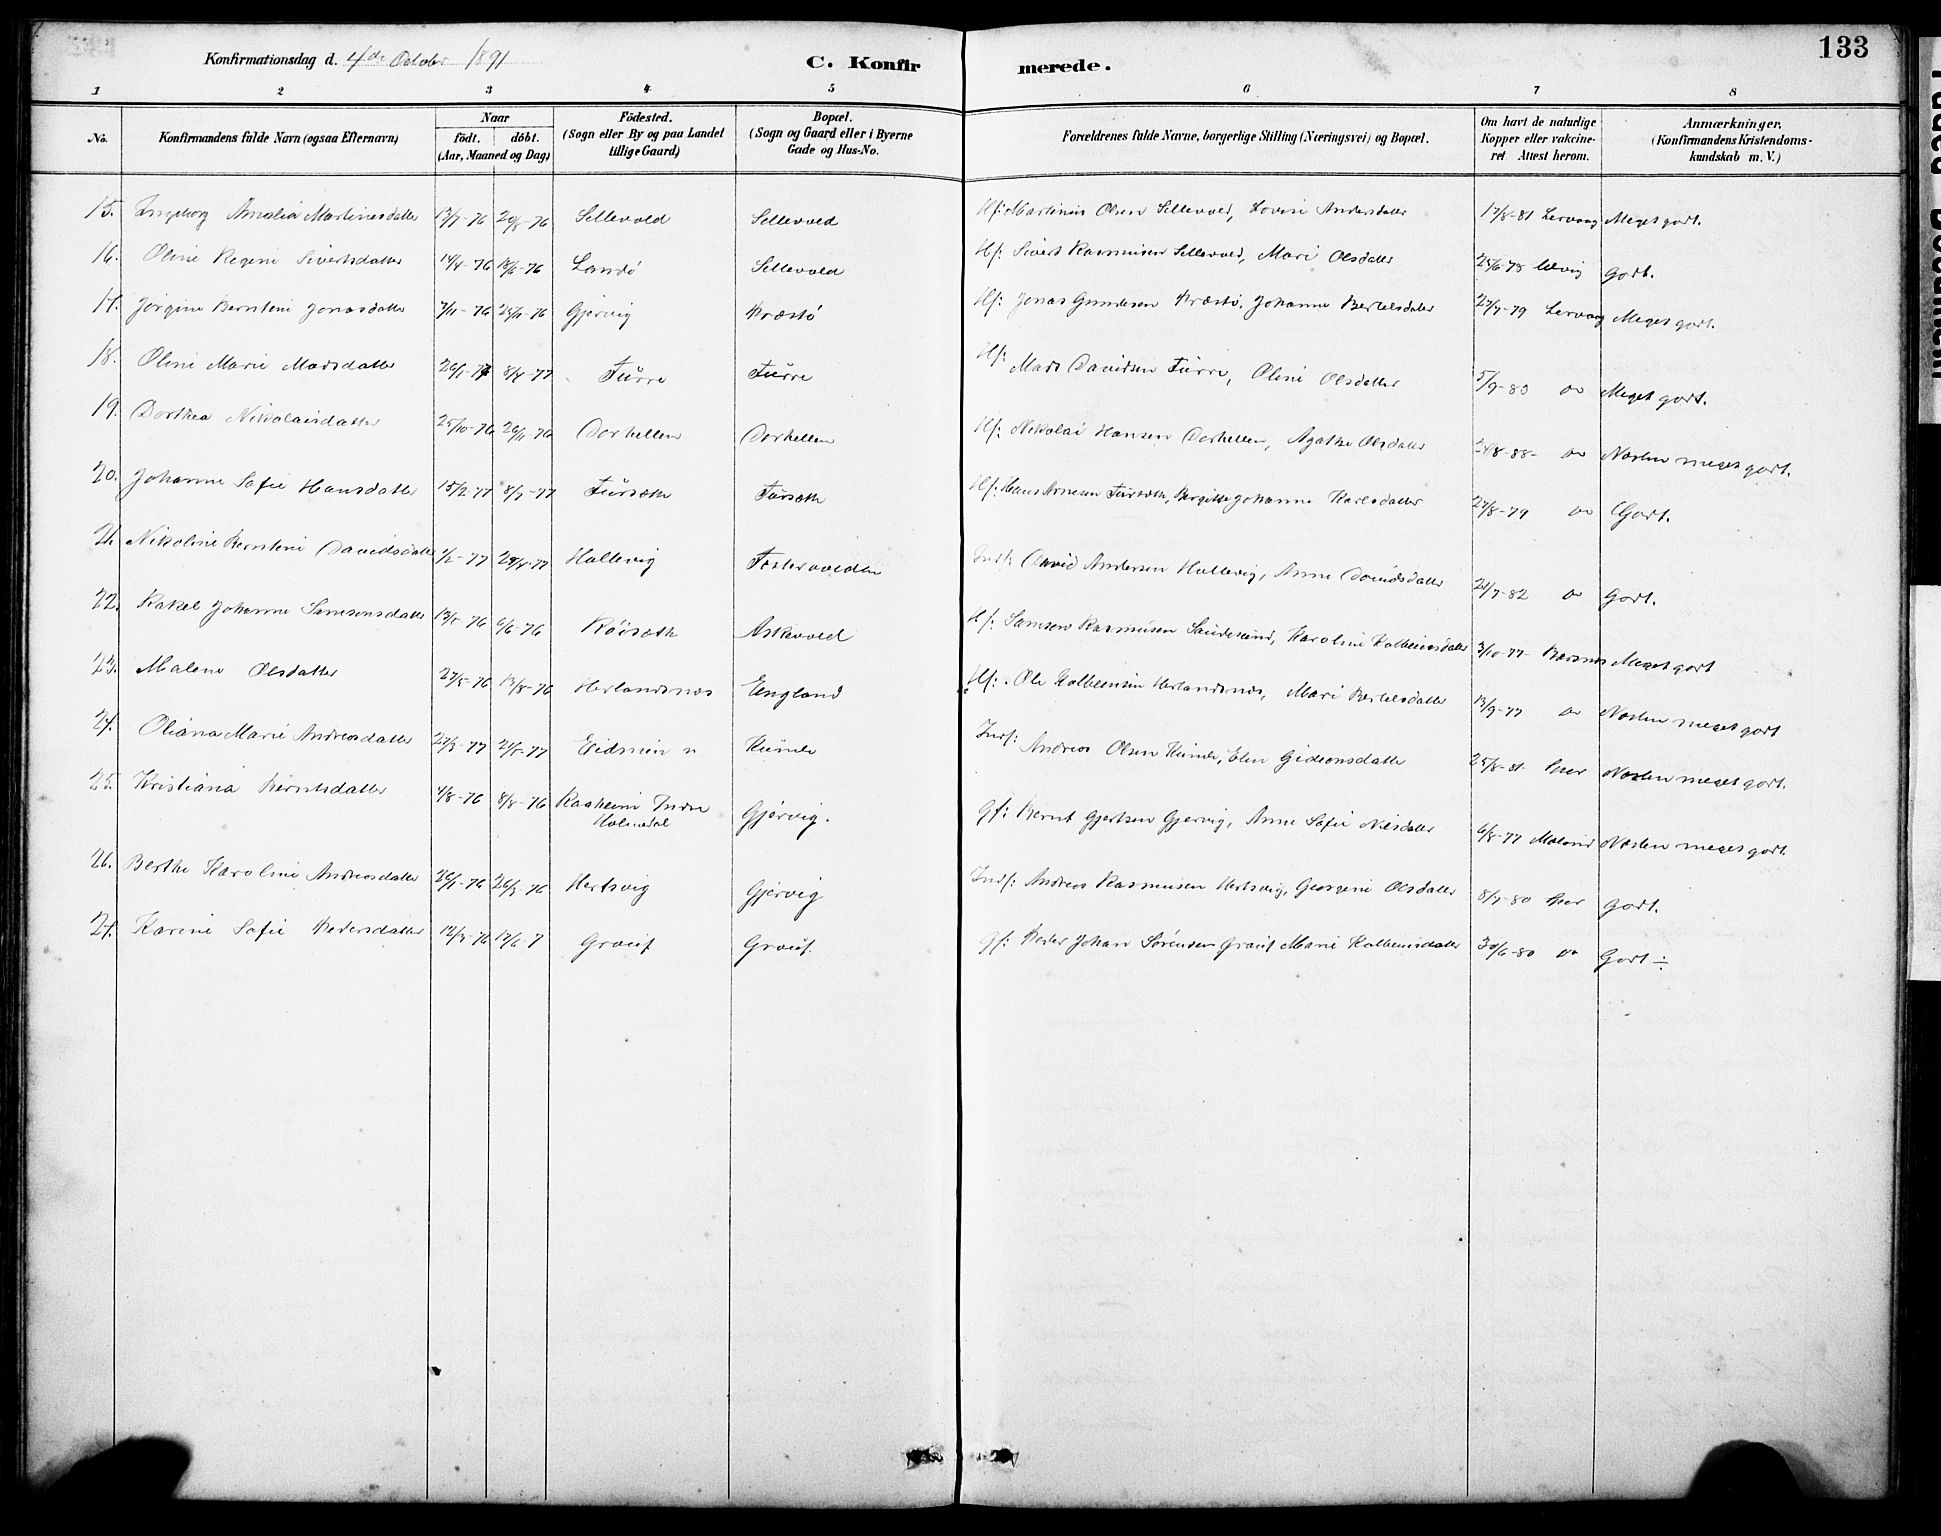 Konfirmationsdag d. 4de October 1891
C. Konfirmerede.
133
1 2 3 4 5 6 7 8
No.
Konfirmandens fulde Navn (ogsaa Efternavn)
Naar
født. døbt.
(Aar, Maaned og Dag)
Fødested.
(Sogn eller By og paa Landet
tillige Gaard)
Bopæl.
(Sogn og Gaard eller i Byerne
Gade og Hus-No.
Forældrenes fulde Navne, borgerlige Stilling (Næringsvei) og Bopæl.
Om havt de naturlige
Kopper eller vakcine-
ret Attest herom.
Anmærkninger.
(Konfirmandens Kristendoms-
kundskab m. V.)
15. Ingeborg Amalia Martinesdatter 13/7-76 20/8-76 Sellevold Sellevold Hf: Martinus Olsen Sellevold, Lovise Andersdatter 17/8-81 Lervaag Meget godt.
16. Oline Regine Sivertsdatter 14/4-76 18/6-76 Landø Sellevold Hf: Sivert Rasmusen Sellevold, Mari Olsdatter 25/6-78 godt.
17. Jørgine Berntine Jonasdatter 7/11-76 25/11-76 Gjervig Præstø Hf: Jonas Gundesen Præstø, Johanne Bertelsdatter 27/7-79 Lervaag Meget godt.
18. Oline Marie Madsdatter 26/1-77 8/4-77 Furre Furre Hf: Mads Davidsen Furre, Oline Olsdatter 5/9-80 do Meget godt.
19. Dorthea Nikolaisdatter 25/10-76 26/11-76 Dorhellen Dorhellen Hf: Nikolai Hansen Dorhellen, Agathe Olsdatter do Næsten meget godt.
20. Johanne Sofie Hansdatter 15/2-77 8/7-77 Fursæth Fursæth Hf: Hans Arnesen Fursæth, Birgitte Johanne Karlsdatter 27/8-79 do Godt.
21. Nikoline Berntine Davidsdatter 1/2-77 29/4-77 Hallevig Indf: David Andersen Hallevig, Anne Davidsdatter 21/7-82 do Godt.
22. Rakel Johanne Samsonsdatter 13/5-76 6/6-76 Röisæth Askevold Hf: Samson Rasmusen Sandesund, Karoline Kolbeinsdatter 3/10-77 Meget godt
23. Malene Olsdatter 27/5-76 13/8-76 Herlandsnæs England Hf: Ole Kolbeinsen Herlandsnæs, Mari Bertelsdatter 13/9-77 do Næsten meget godt
24. Oliana Marie Andreasdatter 27/3-77 21/5-77 Kumle Indf: Andreas Olsen Kumle, Elen Gideonsdatter 25/8-81 Næsten meget godt.
25. Kristiana Berntsdatter 4/8-76 8/8-76 Raaheim Indre
Holmedal Gjervig. gf: Bernt Gjertsen Gjervig, Anne Sofie Nilsdatter 6/8-77 Næsten meget godt.
26. Berthe Karoline Andreasdatter 26/1-76 26/3-76 Hertsvig Gjervig Indf: Andreas Rasmusen Hertsvig, Georgine Olsdatter 8/7-80 godt.
27. Karine Sofie Pedersdatter 12/3-76 17/6-7 Grouf Grouf. gf: Peder Johan Sørensen Grouf Marie Kolbeinsdatter 30/6-80 do Godt ÷